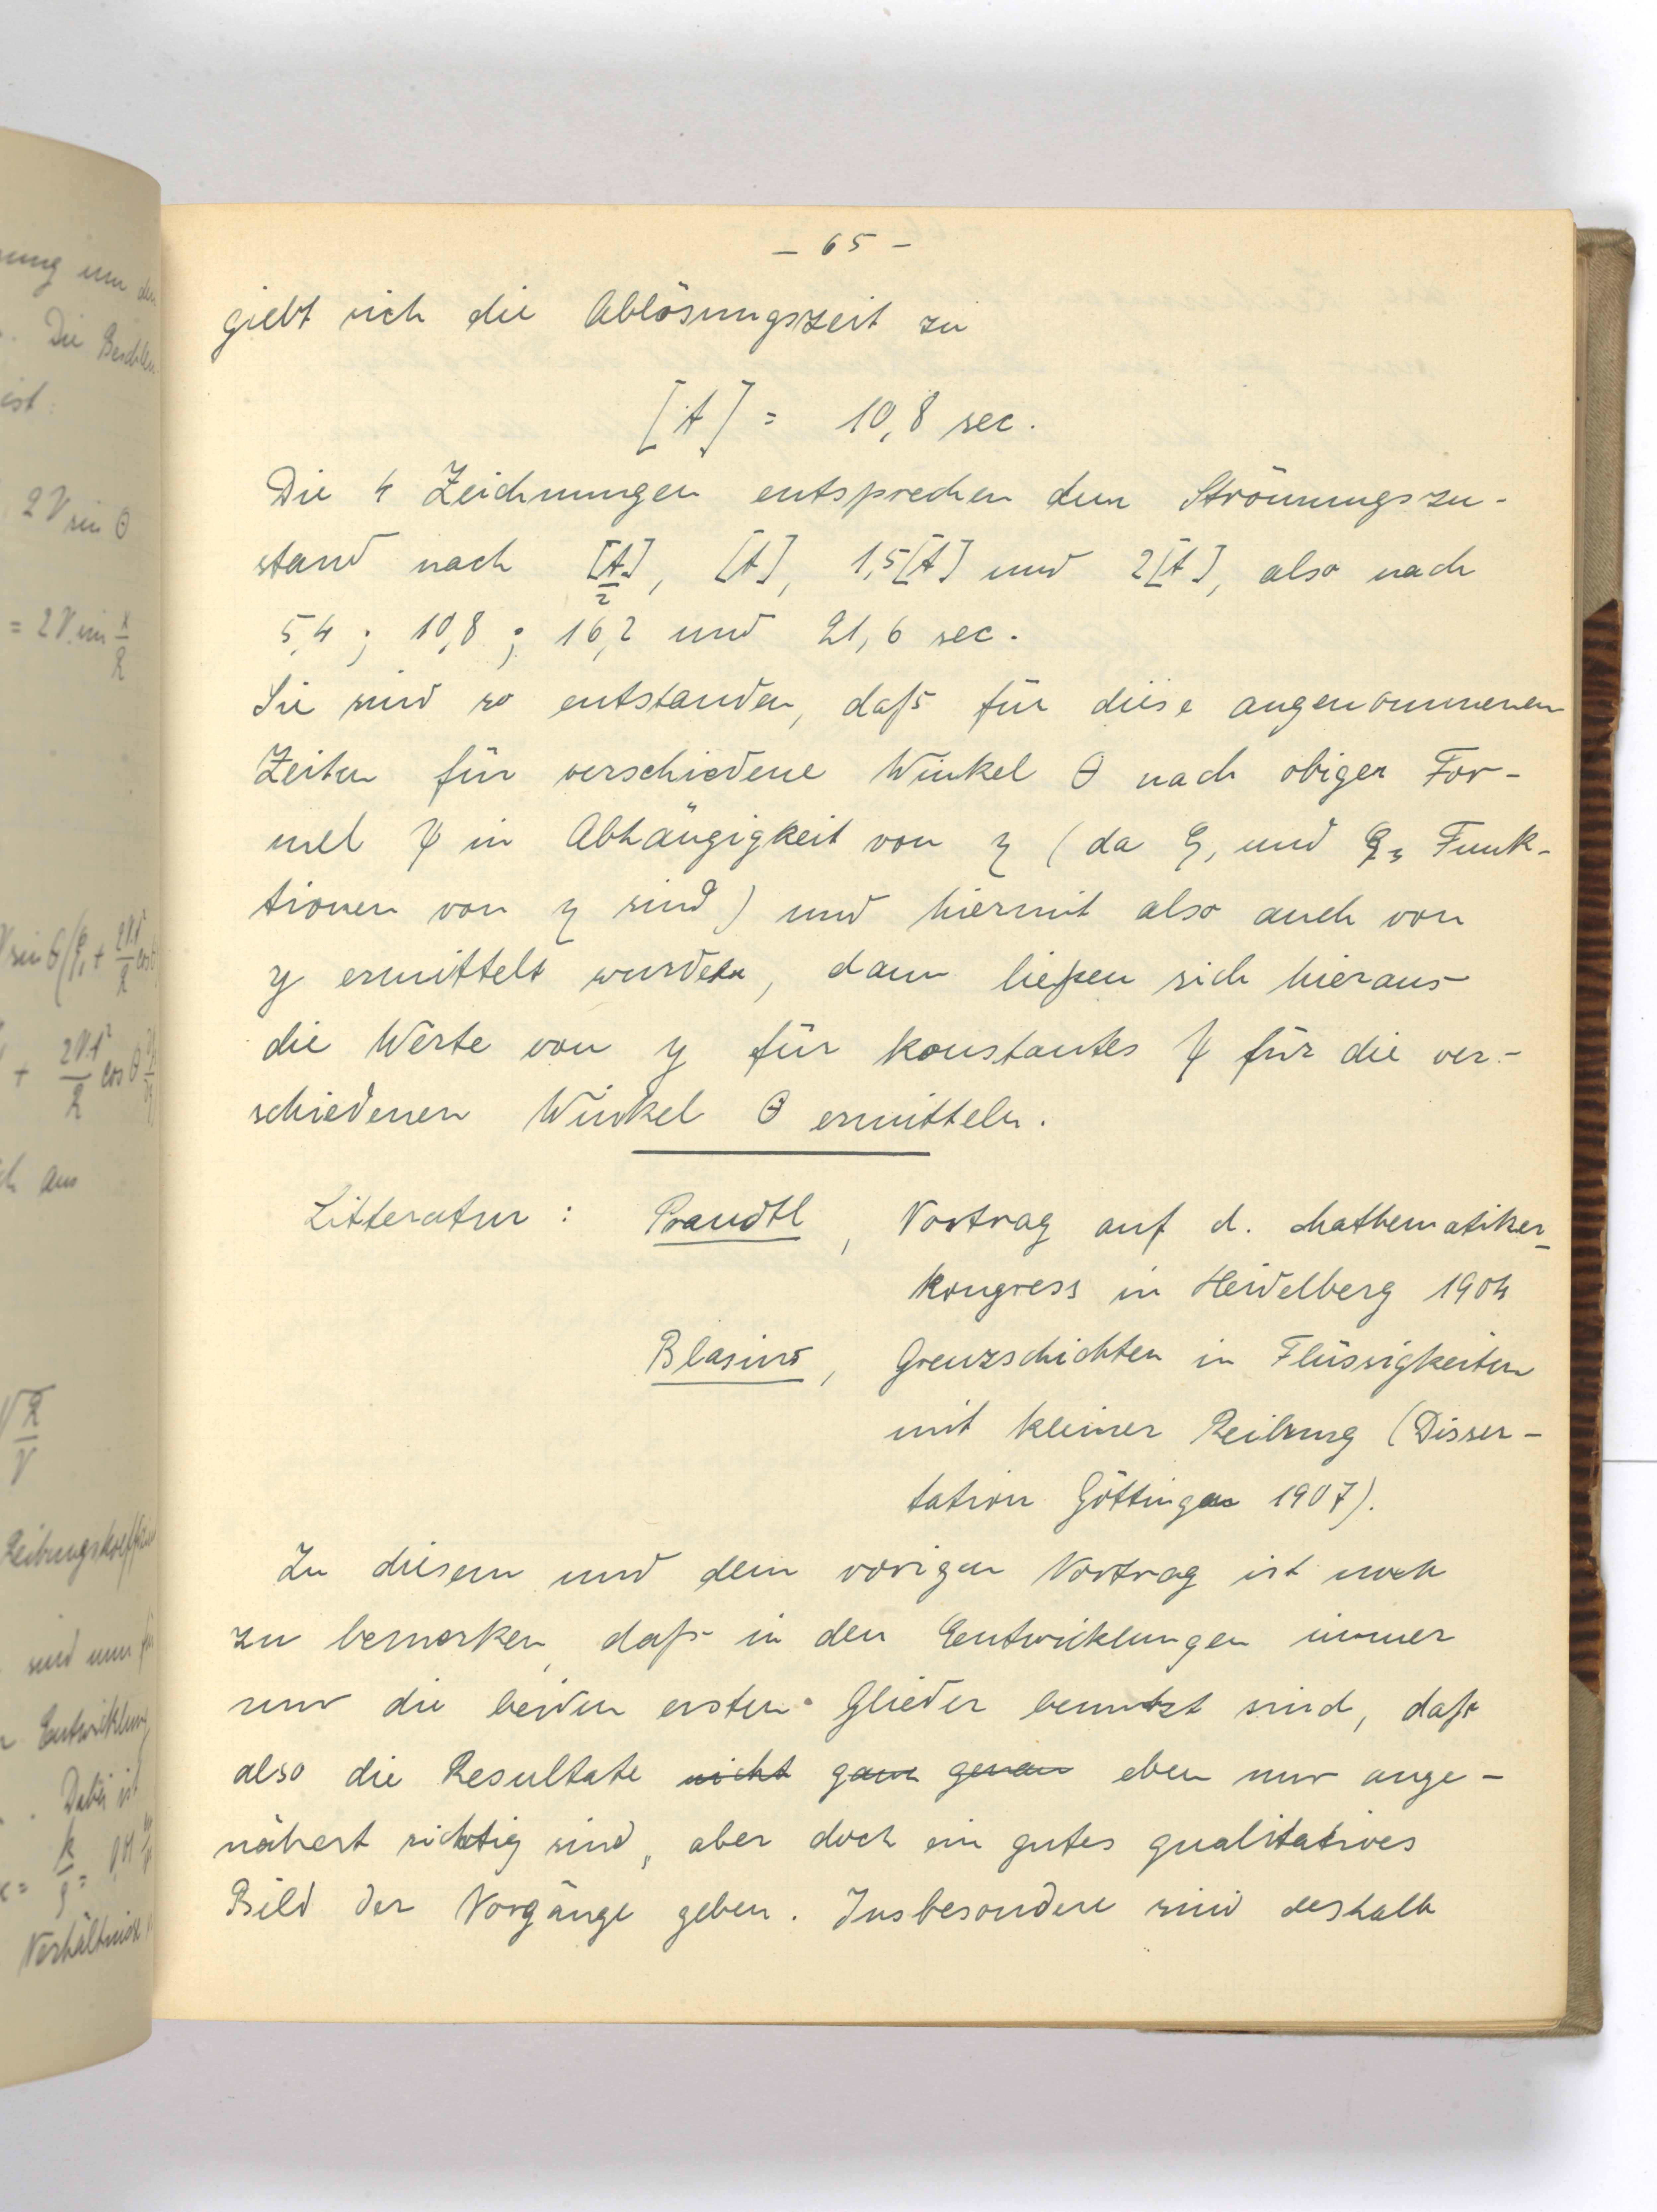 ung um den
Die
ist:
2V sin θ
= 2V sin x/R
+ 2Vt²/R cos θ
Entwicklung
Dabei ist
- 65 -
giebt sich die Ablösungszeit zu
[t] = 10,8 sec.
Die 4 Zeichnungen entsprechen dem Strömungszu-
stand nach [t]/2, [t], 1,5[t] und 2[t], also nach
5,4 ; 10,8 ; 16,2 und 21,6 sec.
Sie sind so entstanden, daß für diese angenommenen
Zeiten für verschiedene Winkel θ nach obiger For-
mel ψ in Abhängigkeit von η (da ζ₁ und ζ₂ Funk-
tionen von η sind) und hiermit also auch von
y ermittelt wurden, dann ließen sich hieraus
die Werte von y für konstantes ψ für die ver-
schiedenen Winkel θ ermitteln.
Litteratur : Prandtl, Vortrag auf d. Mathematiker-
kongress in Heidelberg 1904
Blasius, Grenzschichten in Flüssigkeiten
mit kleiner Reibung (Disser-
tation Göttingen 1907).
Zu diesem und dem vorigen Vortrag ist noch
zu bemerken, daß in den Entwicklungen immer
nur die beiden ersten Glieder benutzt sind, daß
also die Resultate nicht ganz genau eben nur ange-
nähert richtig sind, aber doch ein gutes qualitatives
Bild der Vorgänge geben. Insbesondere sind deshalb